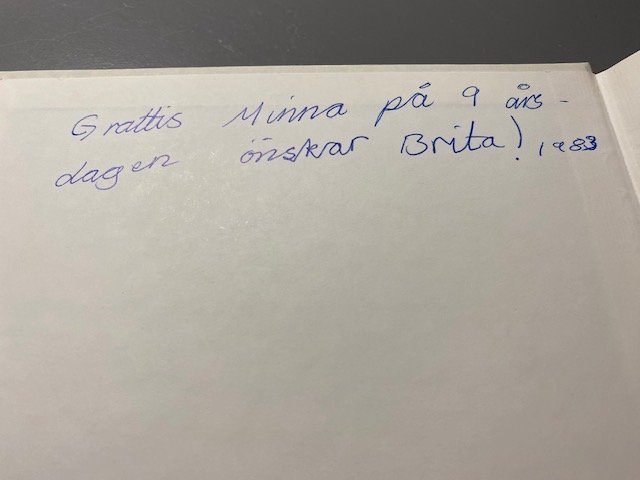 Grattis Minna på 9 års-
dagen önskar Brita! 1983